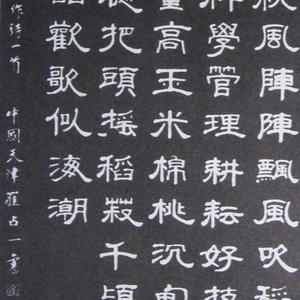 秋風陣陣飄風吹稻
科學管理耕耘好技
量高玉米棉桃沉甸
把頭搖稻菽千頃
歡歌似海潮
作詩一首 中國天津崔占一書